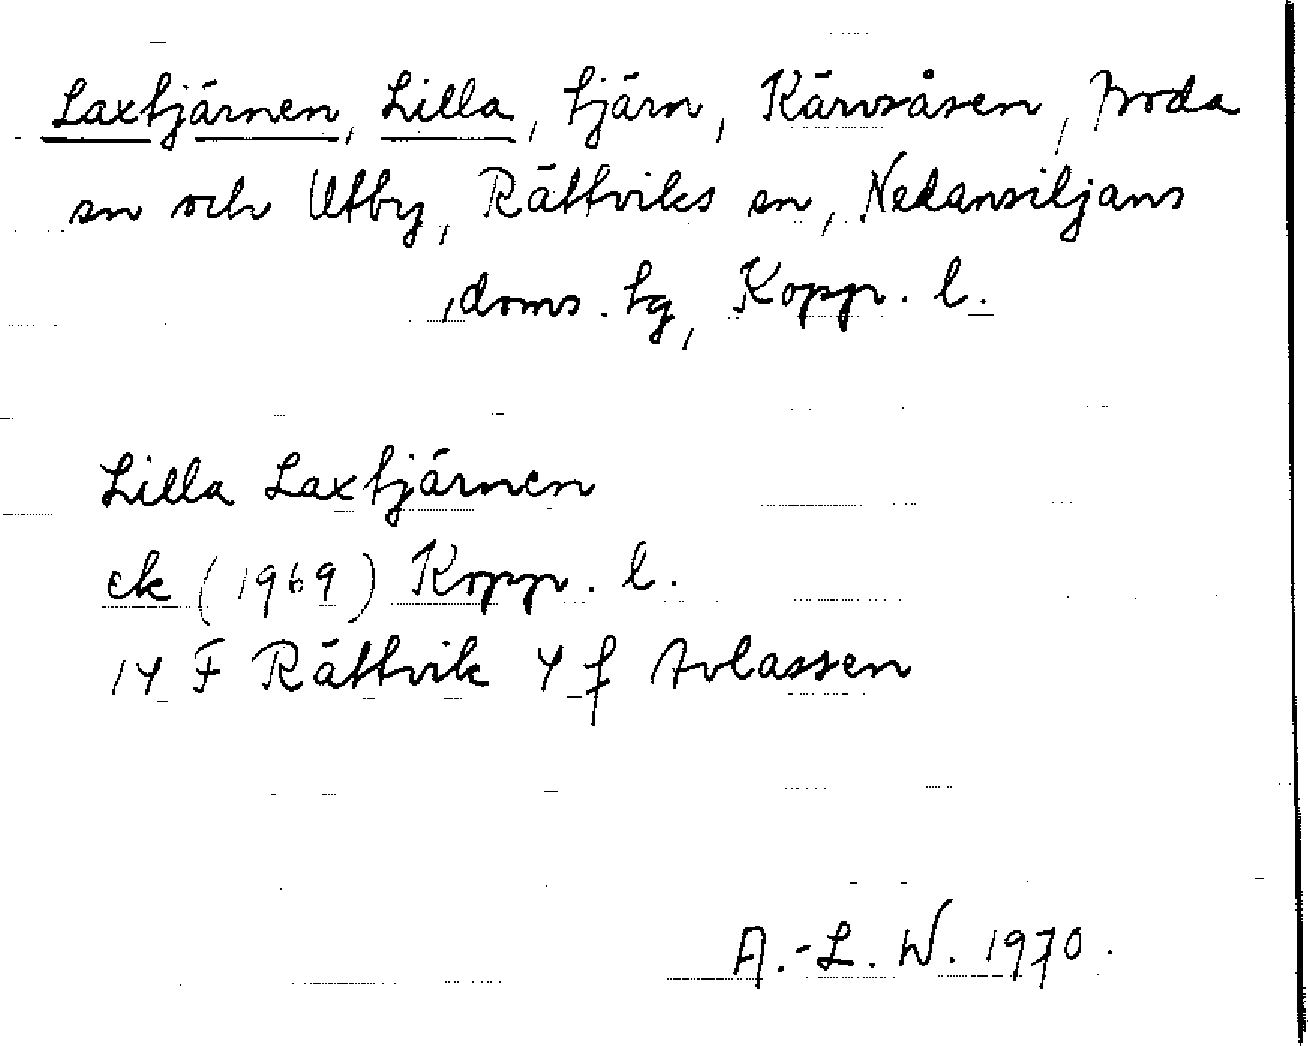 Laxtjärnen, Lilla, tjärn, Kärvsåsen, Boda
sn och Utby, Rättviks sn, Nedansiljans
doms. tg, Kopp. l.
Lilla Laxtjärnen
ek (1969) Kopp. l.
14 F Rättvik 4 f Avlassen
A.-L. W. 1970.